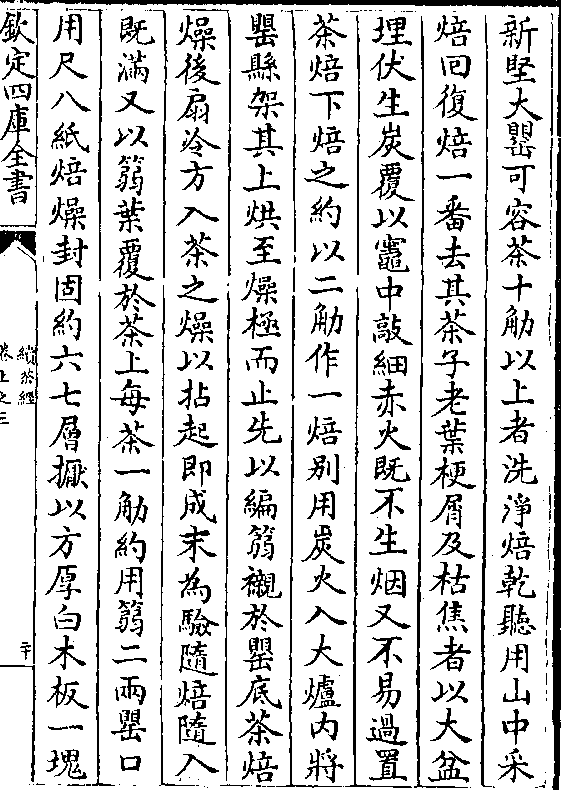 新堅大罌可容茶十觔以上者洗淨焙乾聽用山中采
焙回復焙一番去其茶子老葉梗屑及枯焦者以大盆
埋伏生炭覆以竈中敲細赤火既不生烟又不易過置
茶焙下焙之約以二觔作一焙别用炭火入大爐内將
罌縣架其上烘至燥極而止先以編篛襯於罌底茶焙
燥後扇冷方入茶之燥以拈起即成末為驗隨焙隨入
既滿又以篛葉覆於茶上每茶一觔約用篛二兩罌口
用尺八紙焙燥封固約六七層擫以方厚白木板一塊
欽定四庫全書
續茶經
卷上之三
二十